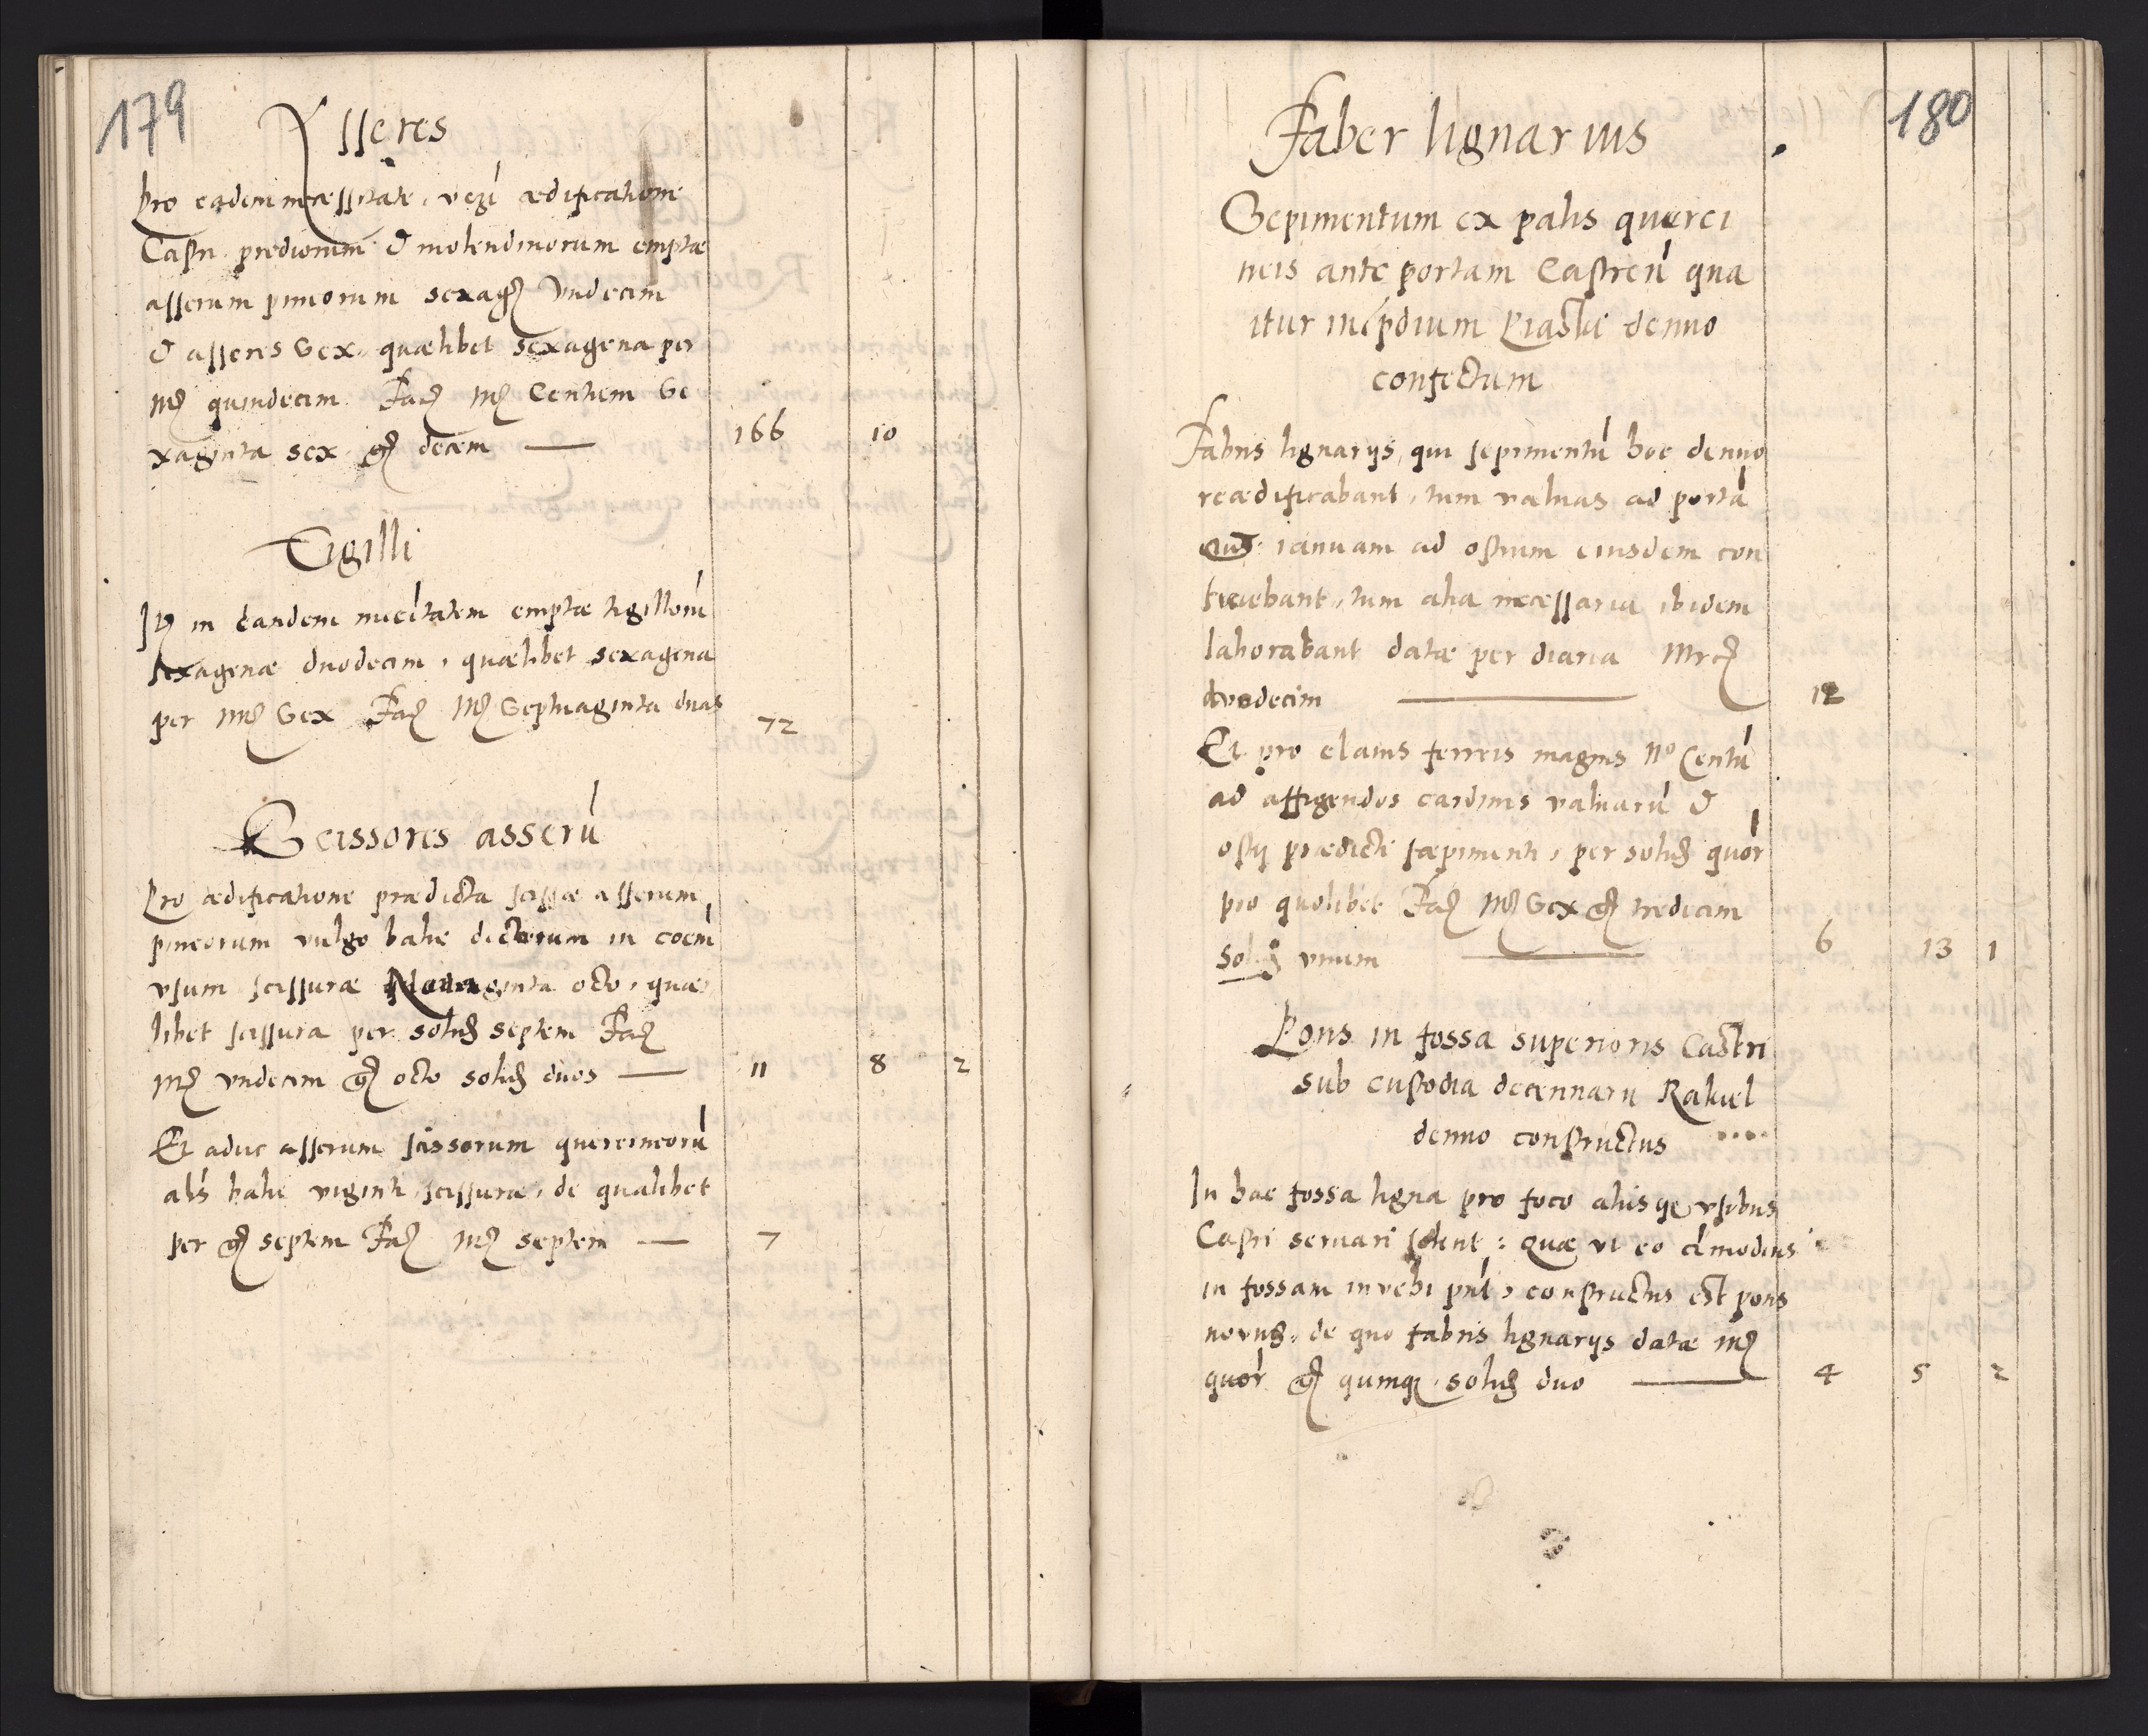 179
Asseres
Pro eadem necessitate, vezú ædificatione
Castri prediorum & molendinorum emptæ
asserum pineorum sexag Vndecim
& asseres Sex, quælibet sexagena per
Mſ quindecim Facſ Mſ Centum Se
xaginta sex gſ decem — 166 10
Tigilli
In eandem nuecítatem emptæ tigillorú
sexagenæ duodecim, quælibet sexagena
per Mſ Sex Facſ Mſ Septuaginta duas 72
Scissores asserú
Pro ædificatione prædicta scissæ asserum
pineorum vulgo balie dictorum in coem
vsum scissuræ Nonaginta octo, quæ
libet scissura per solid septem Facſ
Mſ vndecim gſ octo solid duos — 11 8 2
Et aduc asserum scissorum quercineorú
aliś balie viginti scissuræ, de qualibet
per gſ septem Facſ Mſ septem — 7
180
Faber lignarius
Sepimentum ex palis querci
neis ante portam Castreń qua
itur in p̃dium Piaski denuo
confectum
Fabris lignarijs, qui sepimentú hoc denuo
reædificabant, tum valuas ad portá
eius ianuam ad ostium eiusdem con
ficiebant, tum alia necessaria ibidem
laborabant datæ per diaria Mrcſ
duodecim — 12
Et pro clauis ferreis magnis No Centú
ad affigendos cardines valuarú &
ostij prædicti sæpimenti, per solid quor
pro quolibet Facſ Mſ Sex gſ tredecim
solid vnum — 6 13 1
Pons in fossa superioris Castri
sub custodia decennarii Rakiel
denuo constructus
In hac fossa ligna pro foco alijsqe vsibus
Castri seruari solent: Quæ vt eo cómodius
in fossam invehi pnt, constructus est pons
novus, de quo fabris lignarijs datæ Mſ
quor gſ quinqe, solid duo — 4 5 2